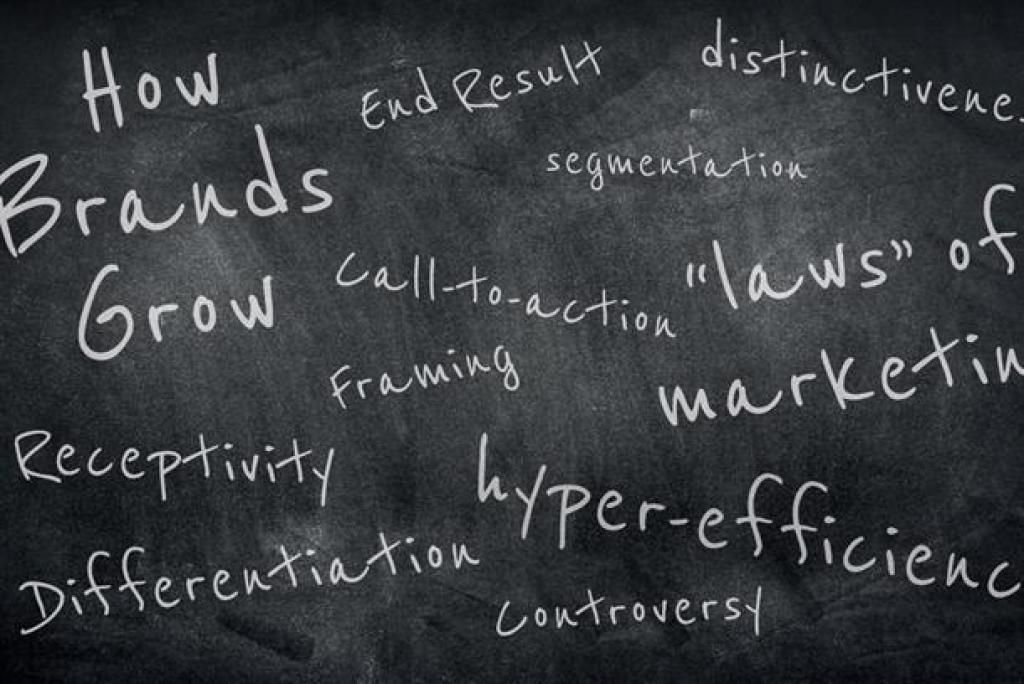 How
Brands
Grow
End Result
distinctivene
segmentation
Call-to-action
"laws" of
Framing
marketin
Receptivity
hyper-efficienc
Differentiation
Controversy